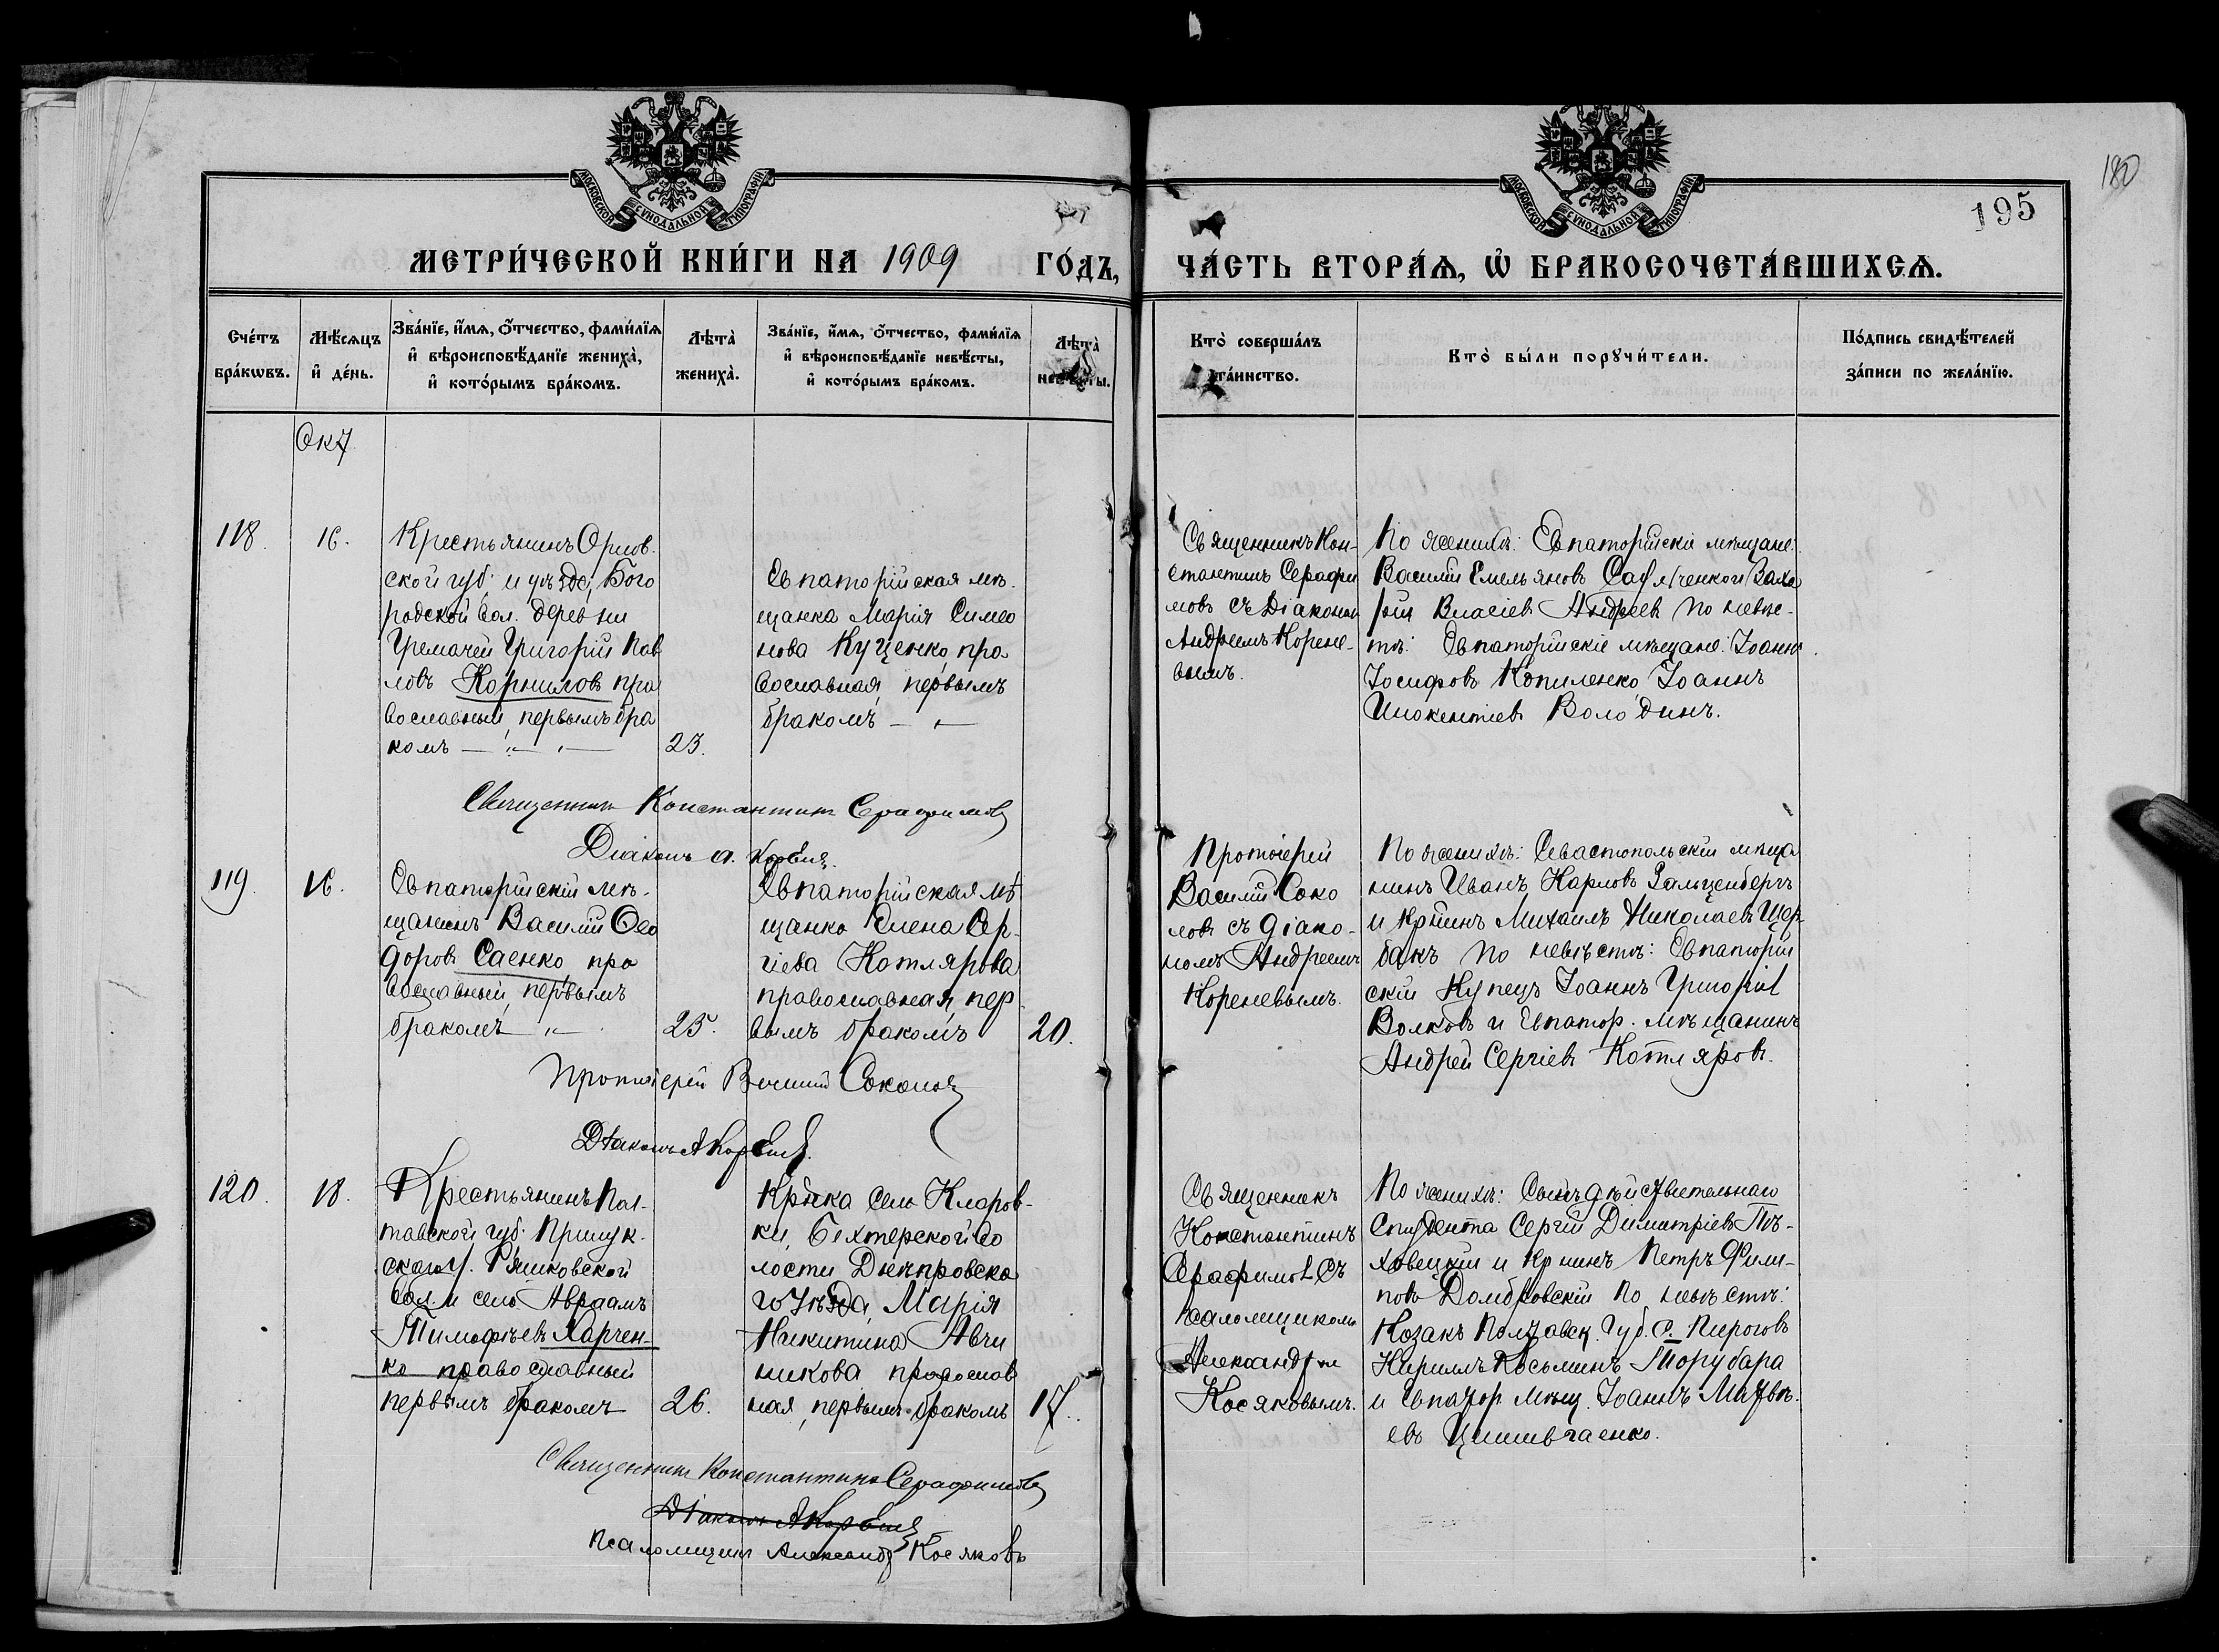 180
195
МОСКОВСКОЙ СѴНОДАЛЬНОЙ ТИПОГРАФІИ
МОСКОВСКОЙ СѴНОДАЛЬНОЙ ТИПОГРАФІИ
МЕТРИ́ЧЕСКОЙ КНИ́ГИ НА 1909 ГО́ДЪ,
ЧА́СТЬ ВТОРА́Ѧ, Ѽ БРАКОСОЧЕТА́ВШИХСѦ.
Сче́тъ
бра́кѡвъ.
Мѣ́сѧцъ
и҆ де́нь.
Зва́нїе, и҆́мѧ, ѻ҆́тчество, фами́лїѧ
и҆ вѣроисповѣ́данїе жениха̀,
и҆ кото́рымъ бра́комъ.
Лѣта̀
жениха̀.
Зва́нїе, и҆́мѧ, ѻ҆́тчество, фами́лїѧ
и҆ вѣроисповѣ́данїе невѣ́сты,
и҆ кото́рымъ бра́комъ.
Лѣта̀
невѣ́сты.
Кто̀ соверша́лъ
та́инство.
Кто̀ бы́ли порꙋчи́тели.
По́дпись свидѣ́телей
за́писи по жела́нїю.
Окт
118.
16.
Крестьянинъ Орлов.
ской губ. и уѣзда, Бого
родской вол. деревни
Гремачей Григорій Пав
ловъ Корниловъ пра
вославный, первымъ бра
комъ — „ —
23.
Евпаторійская мѣ-
щанка Марія Симео
нова Куценко, пра
вославная, первымъ
бракомъ — „
Священникъ Кон-
стантинъ Серафи
мовъ съ Діакономъ
Андреемъ Корене-
вымъ.
По женихѣ: Евпаторійскіе мѣщане:
Василій Емельяновъ и Заха
рій Власіевъ Андреевъ по невѣс-
тѣ: Евпаторійскіе мѣщане: Іоаннъ
Іосифовъ Копиленко Іоаннъ
Инокентіевъ Володинъ.
Священникъ Константинъ Серафимовъ
Діаконъ А. Кореневъ.
119.
16.
Евпаторійскій мѣ-
щанинъ Василій Ѳео
доровъ Саенко, пра
вославный, первымъ
бракомъ „
25.
Евпаторійская мѣ
щанка Елена Сер-
гіева Котлярова
православная, пер
вымъ бракомъ
20.
Протоіерей
Василій Соко
ловъ съ діако-
номъ Андреемъ
Кореневымъ.
По женихѣ: Севастопольскій мѣща
нинъ Иванъ Карловъ Зальценбергъ
и кр̃нинъ Михаилъ Николаевъ Щер-
банъ по невѣстѣ: Евпаторій
скій Купецъ Іоаннъ Григоріевъ
Волковъ и Евпатор. мѣщанинъ
Андрей Сергіевъ Котляровъ.
Протоіерей Василій Соколовъ
Діаконъ А Кореневъ.
120.
18.
Крестьянинъ Пол-
тавской губ. Прилук-
скаго у. Ряшковской
вол. и село Авраамъ
Тимоѳѣевъ Харчен-
ко православный
первымъ бракомъ
26.
Кр̃нка села Кларов-
ки, Бехтерской во
лости Днѣпровска
го уѣзда, Марія
Никитина Авчи
никова православ
ная, первымъ бракомъ
17.
Священникъ
Константинъ
Серафимовъ съ
псаломщикомъ
Александромъ
Косяковымъ.
По женихѣ: Сынъ дѣйствительнаго
Студента Сергій Димитріевъ Тѣ-
ховецкій и кр̃нинъ Петръ Фили-
повъ Домбровскій по невѣстѣ:
Козакъ Полтавск. Губ. с. Пироговъ
Кириллъ Косьминъ Торубара
и Евпатор мѣщ. Іоаннъ Матвѣ-
евъ
Священникъ Константинъ Серафимовъ
Діаконъ А Кореневъ
Псаломщикъ Александръ Косяковъ